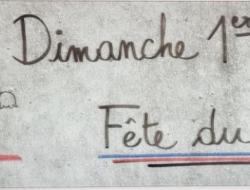 Dimanche 1er
Fête du